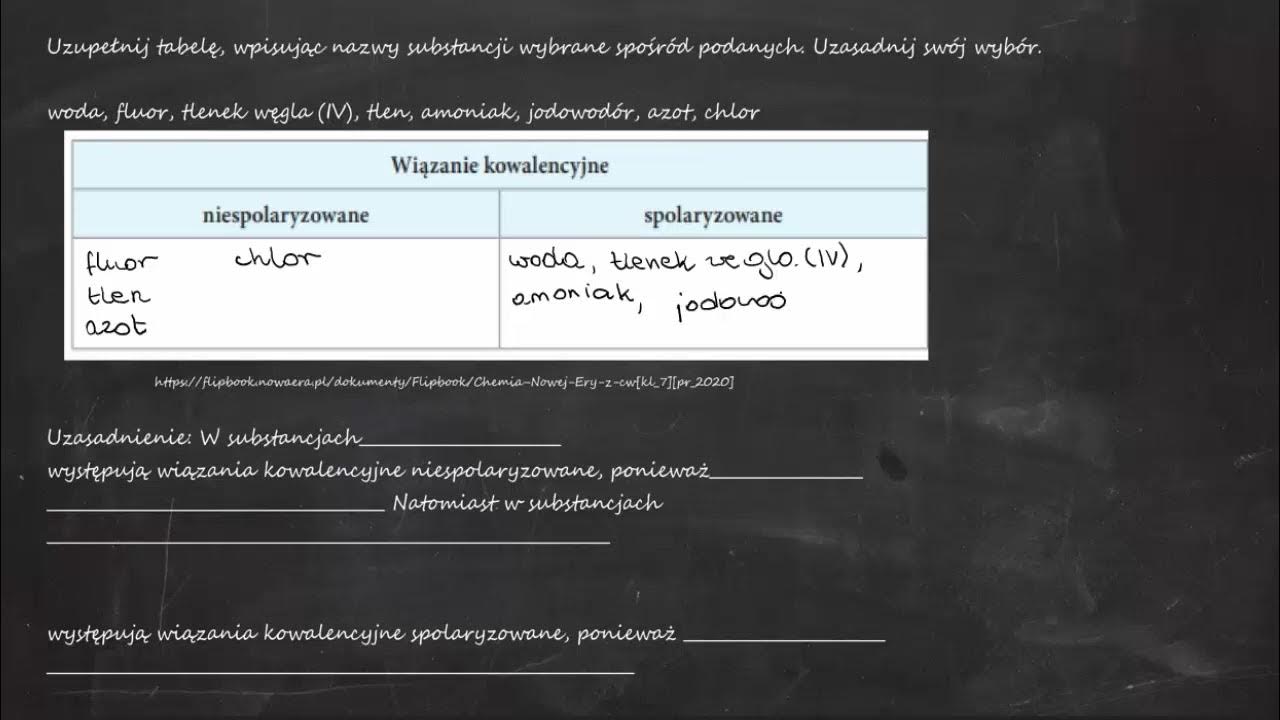 Uzupełnij tabelę, wpisując nazwy substancji wybrane spośród podanych. Uzasadnij swój wybór.
woda, fluor, tlenek węgla (IV), tlen, amoniak, jodowodór, azot, chlor
Wiązanie kowalencyjne
niespolaryzowane spolaryzowane
fluor chlor woda, tlenek węgla (IV),
tlen amoniak, jodowo
azot
https://flipbook.nowaera.pl/dokumenty/Flipbook/Chemia-Nowej-Ery-z-cw[kl_7][pr_2020]
Uzasadnienie: W substancjach____________________
występują wiązania kowalencyjne niespolaryzowane, ponieważ_______________
__________________________________ Natomiast w substancjach
________________________________________________________
występują wiązania kowalencyjne spolaryzowane, ponieważ ____________________
___________________________________________________________